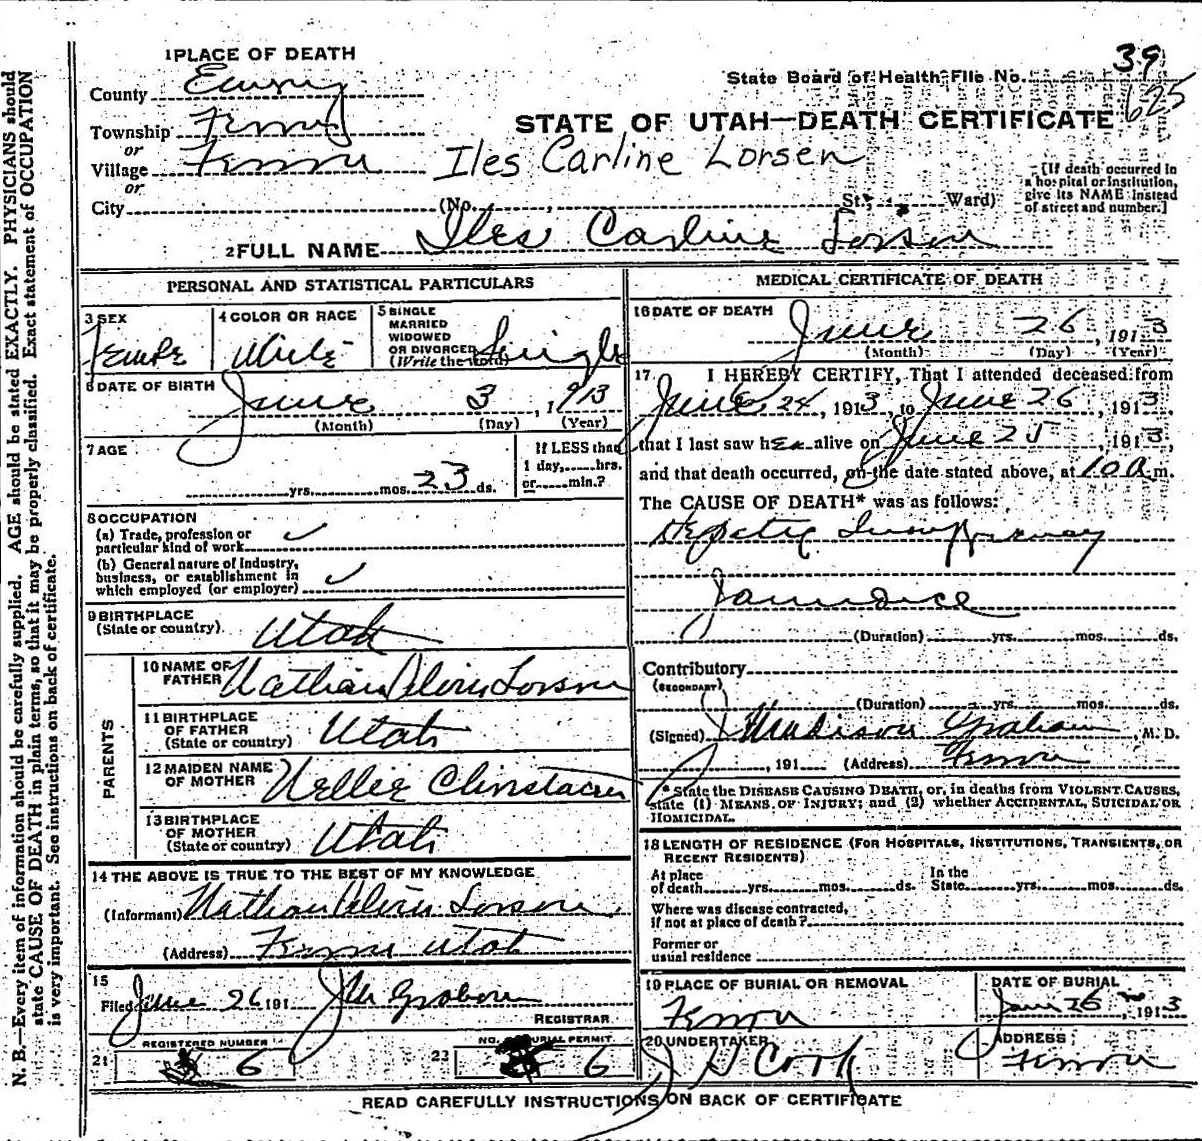 1 PLACE OF DEATH
39
State Board of Health File No.
625
County Emery
STATE OF UTAH—DEATH CERTIFICATE
Township Ferron
or
Village Ferron
Iles Carline Lorsen
or
City (No. St.; Ward)
[If death occurred in
a hospital or institution,
give its NAME instead
of street and number.]
2 FULL NAME Iles Carline Lorsen
PERSONAL AND STATISTICAL PARTICULARS
3 SEX
Female
4 COLOR OR RACE
White
5 SINGLE
MARRIED
WIDOWED
OR DIVORCED
(Write the word)
Single
6 DATE OF BIRTH
June 3, 1913
(Month) (Day) (Year)
7 AGE
yrs. mos. 23 ds.
If LESS than
1 day, hrs.
or min.?
8 OCCUPATION
(a) Trade, profession or
particular kind of work ✓
(b) General nature of Industry,
business, or establishment in
which employed (or employer) ✓
9 BIRTHPLACE
(State or country) Utah
PARENTS
10 NAME OF
FATHER Nathan Lorsen
11 BIRTHPLACE
OF FATHER
(State or country) Utah
12 MAIDEN NAME
OF MOTHER Nellie
13 BIRTHPLACE
OF MOTHER
(State or country) Utah
14 THE ABOVE IS TRUE TO THE BEST OF MY KNOWLEDGE
(Informant) Nathan Lorsen
(Address) Ferron Utah
15
Filed June 26 191
REGISTRAR
REGISTERED NUMBER
21 6
NO. BURIAL PERMIT
22 6
MEDICAL CERTIFICATE OF DEATH
16 DATE OF DEATH
June 26, 1913
(Month) (Day) (Year)
17. I HEREBY CERTIFY, That I attended deceased from
June 24, 1913, to June 26, 1913,
that I last saw her alive on June 25, 1913,
and that death occurred, on the date stated above, at 10 a m.
The CAUSE OF DEATH* was as follows:
Jaundice
(Duration) yrs. mos. ds.
Contributory
(SECONDARY)
(Duration) yrs. mos. ds.
(Signed) J Madison Graham, M. D.
, 191 (Address) Ferron
* State the DISEASE CAUSING DEATH, or, in deaths from VIOLENT CAUSES,
state (1) MEANS OF INJURY; and (2) whether ACCIDENTAL, SUICIDAL OR
HOMICIDAL.
18 LENGTH OF RESIDENCE (FOR HOSPITALS, INSTITUTIONS, TRANSIENTS, OR
RECENT RESIDENTS)
At place
of death yrs. mos. ds.
In the
State yrs. mos. ds.
Where was disease contracted,
if not at place of death?
Former or
usual residence
19 PLACE OF BURIAL OR REMOVAL
Ferron
DATE OF BURIAL
June 26, 1913
20 UNDERTAKER
J H Cook
ADDRESS
Ferron
READ CAREFULLY INSTRUCTIONS ON BACK OF CERTIFICATE
N. B.—Every item of information should be carefully supplied. AGE should be stated EXACTLY. PHYSICIANS should
state CAUSE OF DEATH in plain terms, so that it may be properly classified. Exact statement of OCCUPATION
is very important. See instructions on back of certificate.